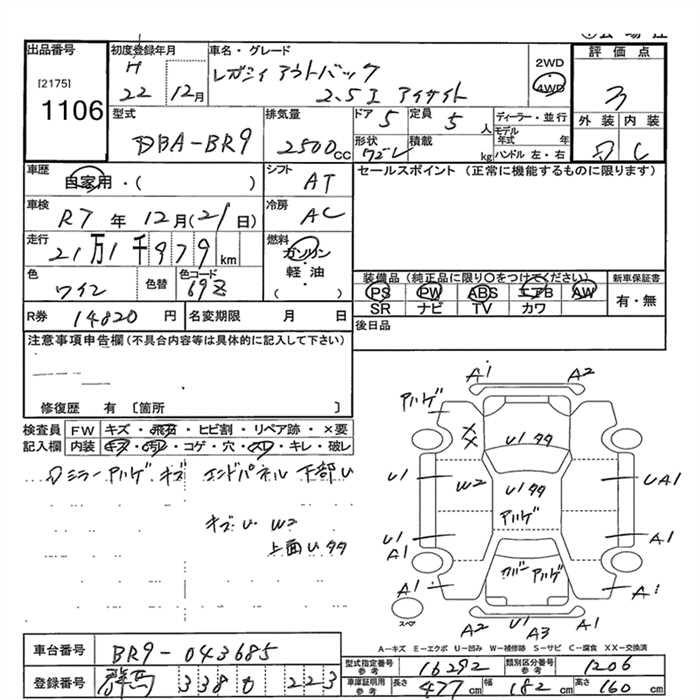 出品番号
[2175]
1106
初度登録年月
H
22 12月
車名・グレード
レガシィ アウトバック
2.5I アイサイト
2WD
4WD
評価点
3
外装 内装
D C
型式
DBA-BR9
排気量
2500cc
ドア 5
定員 5人
形状 ワゴン
積載 kg
ディーラー・並行
モデル年式 年
ハンドル 左・右
車歴
自家用・( )
シフト AT
セールスポイント (正常に機能するものに限ります)
車検
R7 年 12月(21日)
冷房 AC
走行
21万1千979km
燃料
ガソリン
軽油・
( )
色
ワイン
色替
色コード
69Z
装備品(純正品に限り〇をつけてください)
PS PW ABS エアB AW
SR ナビ TV カワ
新車保証書
有・無
R券 14820 円
名変期限 月 日
後日品
注意事項申告欄(不具合内容等は具体的に記入して下さい)
修復歴 有〔箇所 〕
検査員
記入欄
FW キズ・飛石・ヒビ割・リペア跡・×要
内装 キズ・汚レ・コゲ・穴・スレ・キレ・破レ
ミラーアルゲ キズ エンドパネル 下部U
キズ U W2
上面U タタ
A1 A2
アルゲ
XX U1 タタ
U1 W2 U1 タタ UA1
アルゲ
U1 A1
A1
カバー アルゲ
A1 A1
スペア
A2 U1 A3 A1
A-キズ E-エクボ U-凹み W-補修跡 S-サビ C-腐食 XX-交換済
車台番号 BR9-043685
登録番号 群馬 338 223
型式指定番号 参考 16292
類別区分番号 参考 1206
車庫証明用 参考 長さ 477cm 幅 182cm 高さ 160cm